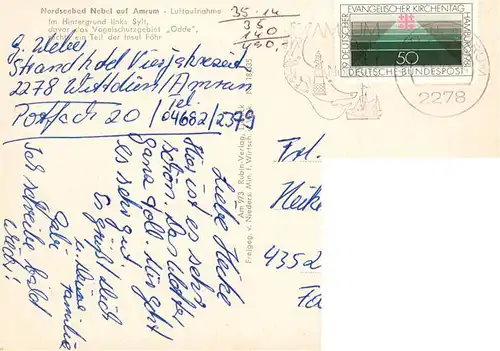 Nordseebad Nebel auf Amrum - Luftaufnahme
Im Hintergrund links Sylt,
davor das Vogelschutzgebiet "Odde",
rechts ein Teil der Insel Föhr
35·14
35
140
490,-
G. Weber
Strandhotel Vierjahreszeit
2278 Wittdün/Amrum
Postfach 20 / Tel. 04682/2379
Liebe Heike
Hier ist es sehr
schön. Das Wetter
ganz toll. Mir geht
es sehr gut
Es grüßt Dich
Gabi
u. Familie
Ich schreibe bald
wieder!
Am 973 Rubin-Verlag,
Freigeg. v. Nieders. Min. f. Wirtsch.
19. DEUTSCHER EVANGELISCHER KIRCHENTAG HAMBURG 1981
50
DEUTSCHE BUNDESPOST
2278
Frl.
Heike
4352